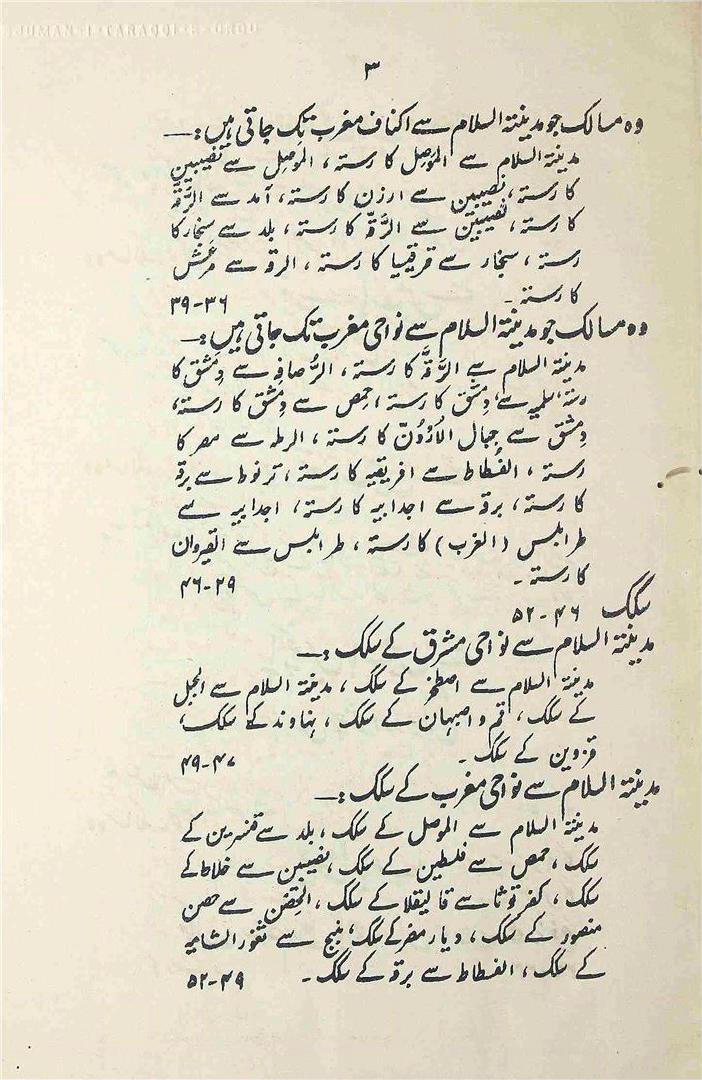 JUMAN-I-TARAQQI-E-URDU
۳
وہ مسالک جو مدینتہ السلام سے اکناف مغرب تک جاتی ہیں :—
مدینتہ السلام سے الموَصِل کا رستہ ، الموَصِل سے نصیبین
کا رستہ ، نصیبین سے ارزن کا رستہ ، آمد سے الرَّقَّہ
کا رستہ ، نصیبین سے الرَّقّہ کا رستہ ، بلد سے سنجار کا
رستہ ، سنجار سے قرقیسیا کا رستہ ، الرقہ سے مَرعَش
کا رستہ ۔ ۳۶-۳۹
وہ مسالک جو مدینتہ السلام سے نواحی مغرب تک جاتی ہیں :—
مدینتہ السلام سے الرَّقَّہ کا رستہ ، الرُّصافہ سے دِمَشق کا
رستہ، سلمیہ سے دِمَشق کا رستہ ، حِمص سے دِمَشق کا رستہ ،
دِمَشق سے جبال الاُرْدُونّ کا رستہ ، الرملہ سے مصر کا
رستہ ، الفُسطاط سے افریقیہ کا رستہ ، ترنوط سے برقہ
کا رستہ ، برقہ سے اجدابیہ کا رستہ ، اجدابیہ سے
طرابلس (الغرب) کا رستہ ، طرابلس سے القیروان
کا رستہ ۔ ۲۹-۴۶
سکک ۴۶-۵۲
مدینتہ السلام سے نواحی مشرق کے سکک :—
مدینتہ السلام سے اصطخر کے سکک ، مدینتہ السلام سے الجبل
کے سکک ، قم و اصبہان کے سکک ، نہاوند کے سکک ،
قزوین کے سکک ۔ ۴۷-۴۹
مدینتہ السلام سے نواحی مغرب کے سکک :—
مدینتہ السلام سے الموصل کے سکک ، بلد سے قنسرین کے
سکک ، حمص سے فلسطین کے سکک ، نصیبین سے خلاط کے
سکک ، کفر توثا سے قالیقلا کے سکک ، الحِصْن سے حصن
منصور کے سکک ، دیار مضر کے سکک ، منبج سے ثغور الشامیہ
کے سکک ، الفسطاط سے برقہ کے سکک ۔ ۴۹-۵۲